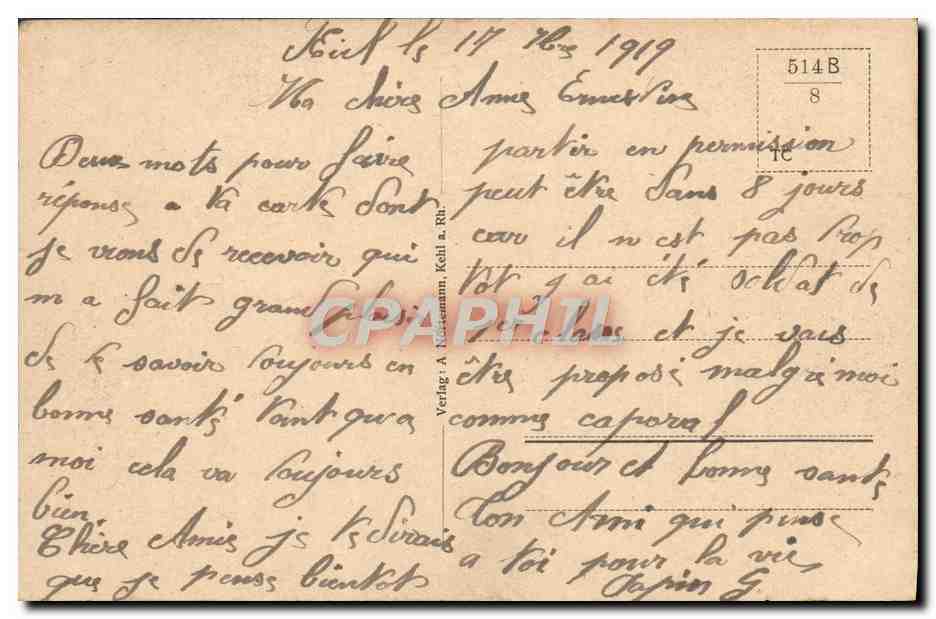 le 17 Xbre 1919
Ma chère Amie Ernestine
Deux mots pour faire
réponse a ta carte dont
je viens de recevoir qui
m a fait grand plaisir
de te savoir toujours en
bonne santé tant qu a
moi cela va toujours
bien
Chère Amie je te dirais
que je pense bientot
partir en permission
peut être dans 8 jours
car il n est pas trop
tot j ai été soldat de
1ère classe et je vais
être proposé malgré moi
comme caporal
Bonjour et bonne santé
Ton Ami qui pense
a toi pour la vie
Papin G.
Verlag: A. Nortemann, Kehl a. Rh.
514B
8
TC
CPAPHIL